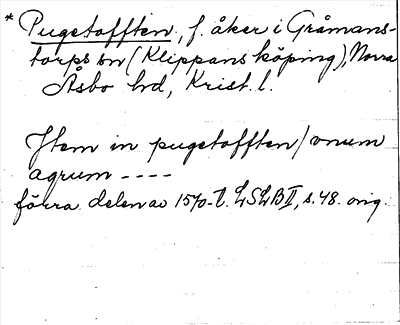 * Pugetofften, f. åker i Gråmans-
torps sn (Klippans köping), Norra
Åsbo hd, Krist. l.
Jtem in pugetofften / vnum
agrum ----
förra delen av 1570-t. LSLB II, s. 48. orig.